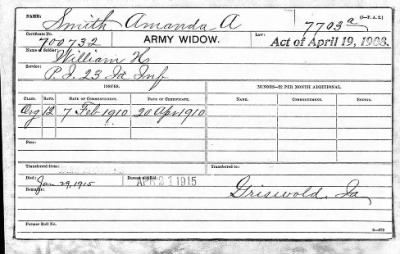 Name, Smith Amanda A 7703a
Certificate No. ARMY WIDOW. Law:
700732 Act of April 19, 1908.
Name of Soldier: William H
Service: P.I. 23 Ia Inf
ISSUES. MINORS—$2 PER MONTH ADDITIONAL.
CLASS. RATE. DATE OF COMMENCEMENT. DATE OF CERTIFICATE. NAME. COMMENCEMENT. ENDING.
Org 12 7 Feb 1910 20 Apr 1910
From:
Transferred from
Died: Jan 29, 1915 APR 21 1915
Remarks: Griswold, Ia
Former Roll No.